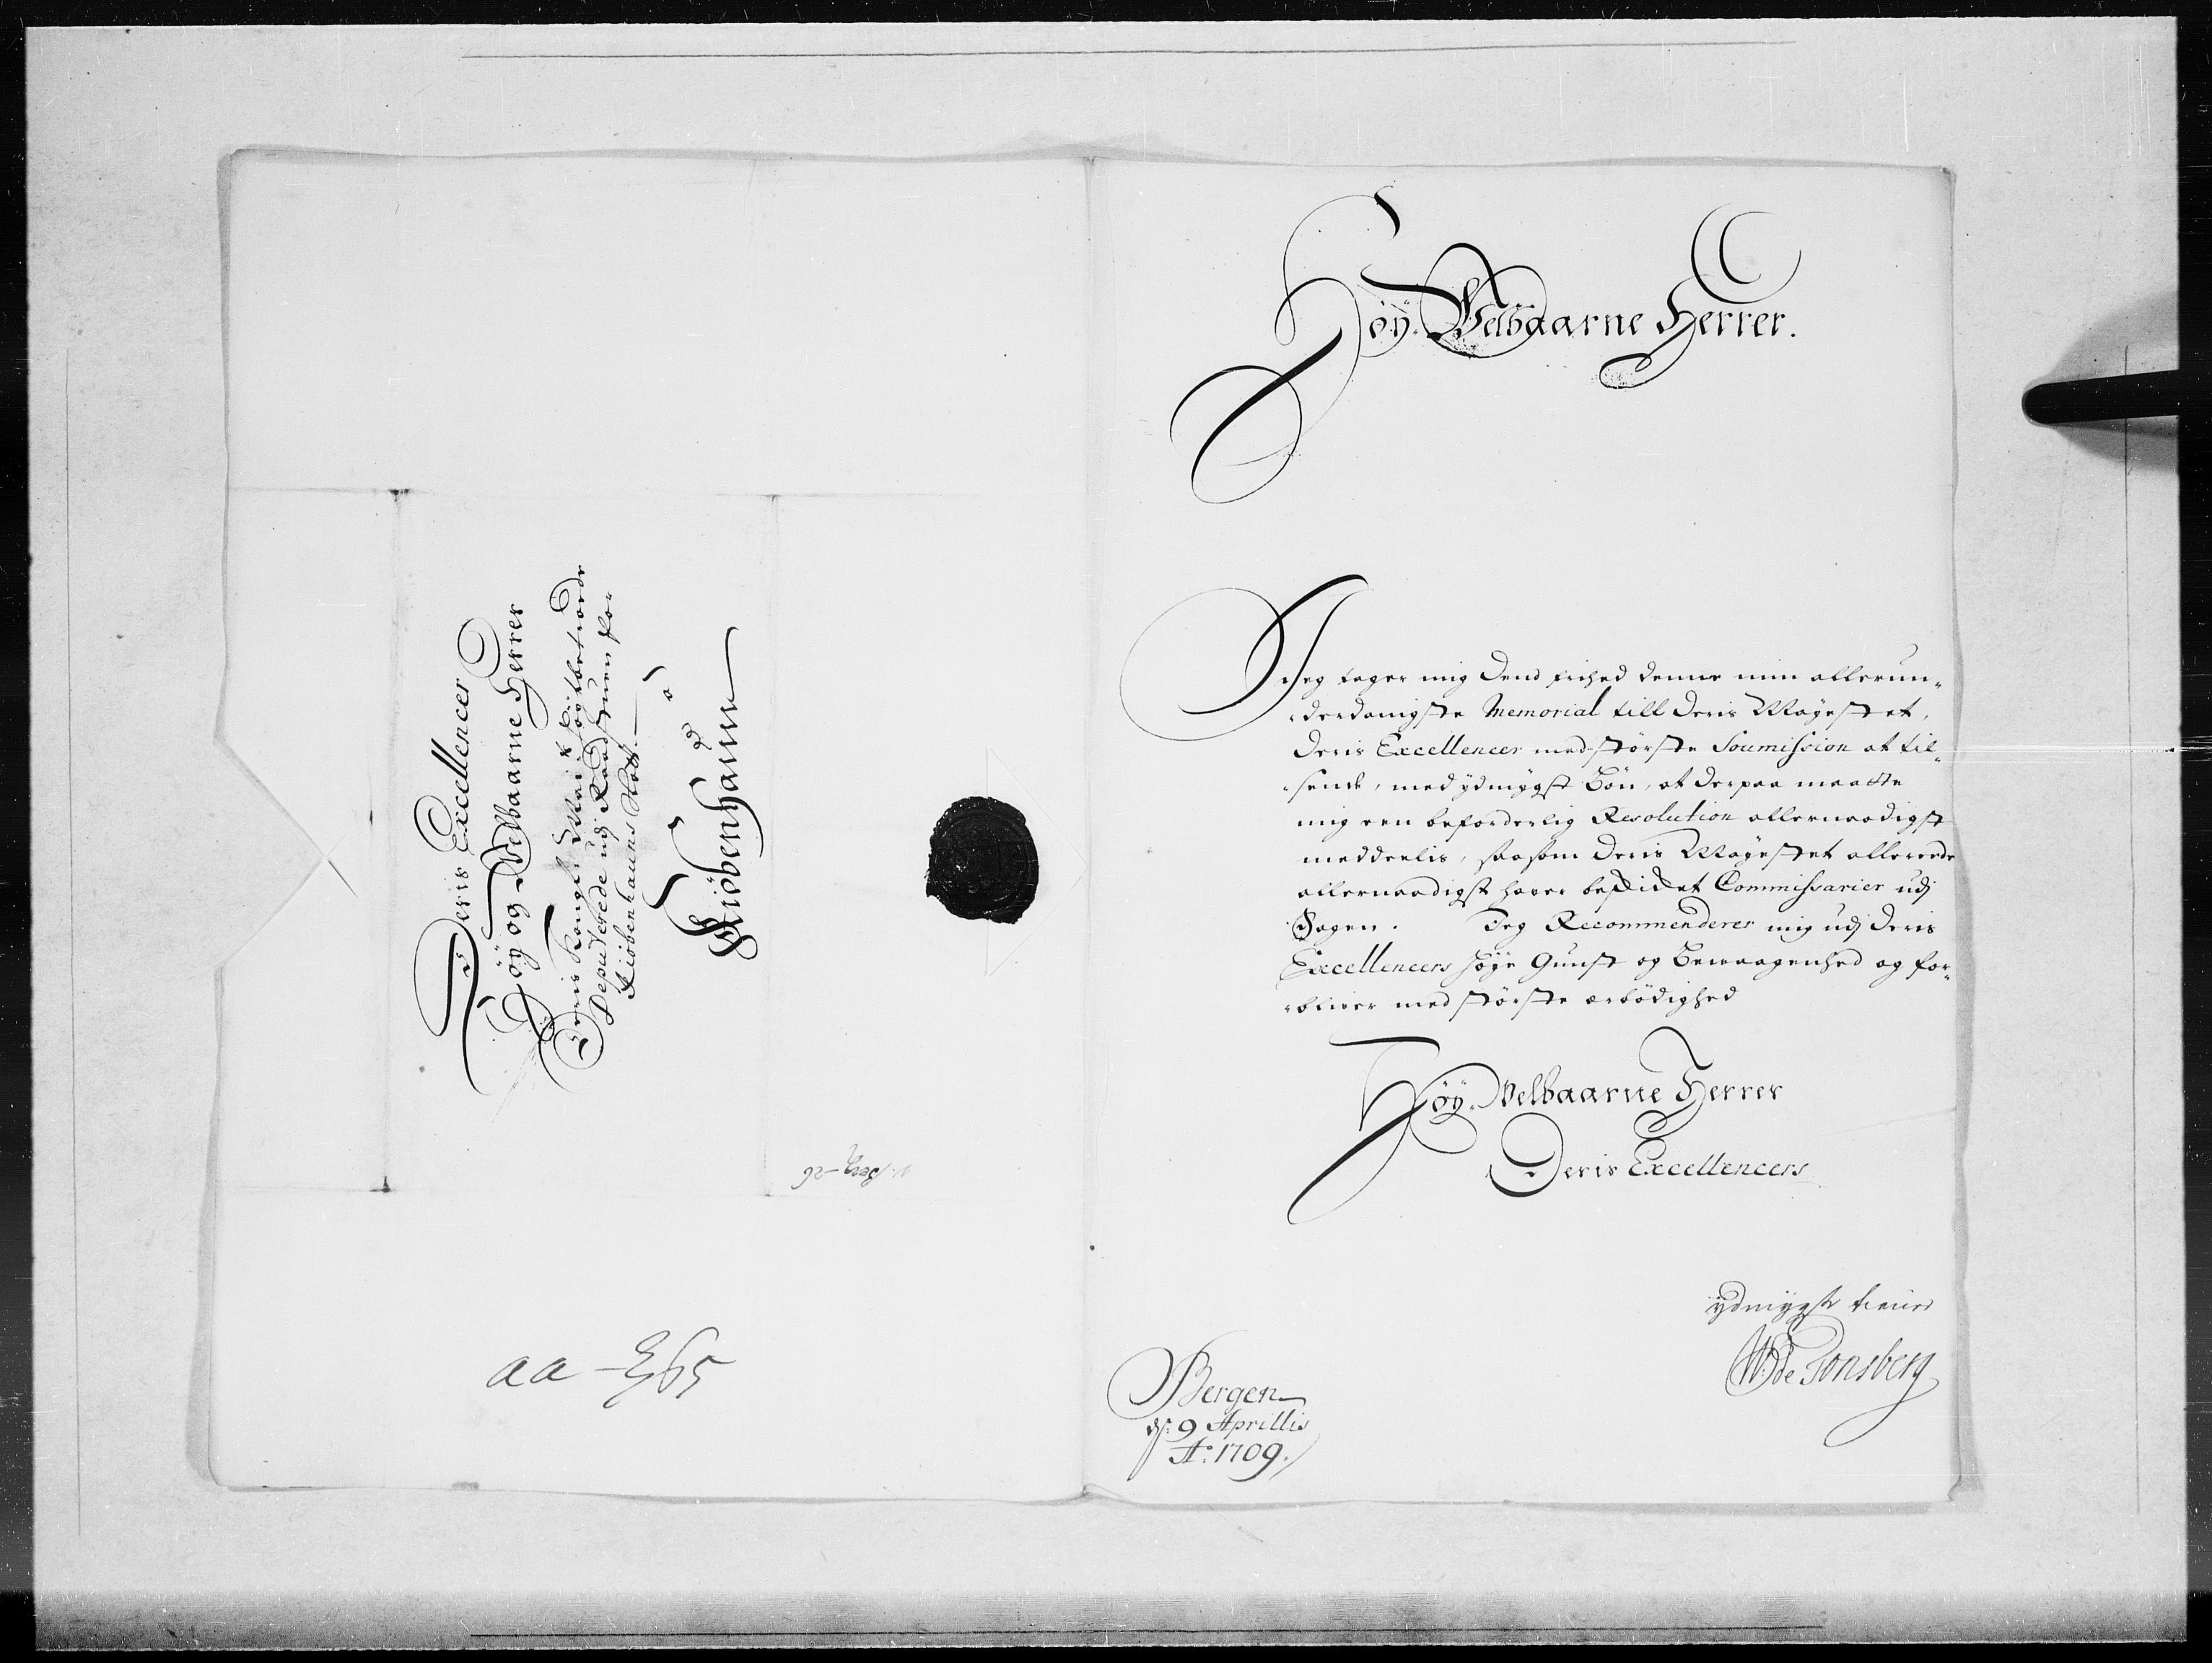 Deris Excellencer
Høÿ og Velbaarne Herrer
Deris Kongl: Maij:ts høÿtbetroede
Deputerede udj Raadstuen for
Kiøbenhauns Slott.
à
Kiøbenhaun
aa - 365
Høÿ-Velbaarne Herrer.
Jeg tager mig dend frihed denne min allerun-
derdanigste Memorial till deris Mayestet,
deris Excellencer med største Soumission at til-
sende, med ydmygst bøn, at derpaa maatte
mig een beforderlig Resolution allernaadigst
meddeelis, saasom deris Mayestet allereede
allernaadigst haver beskicket Commissarier udj
Sagen. Jeg Recommenderer mig udj deris
Excellencers høye Gunst og bevaagenhed og for-
bliver med største ærbødighed
Høÿ-Velbaarne Herrer
Deris Excellencers
ydmygste tiener
W: de Tonsberg
Bergen
ds: 9 Aprillis
Ao: 1709.